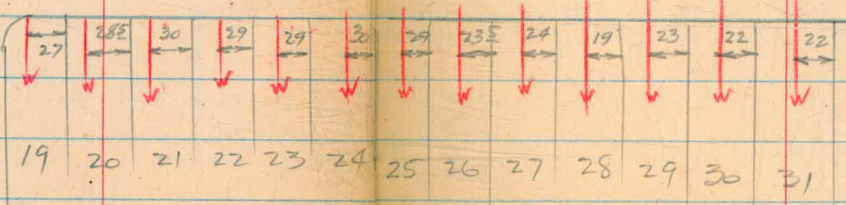 27 28⁵ 30 29 29 30 29 23⁵ 24 19 23 22 22
W W W W W W W W W W W W W
19 20 21 22 23 24 25 26 27 28 29 30 31